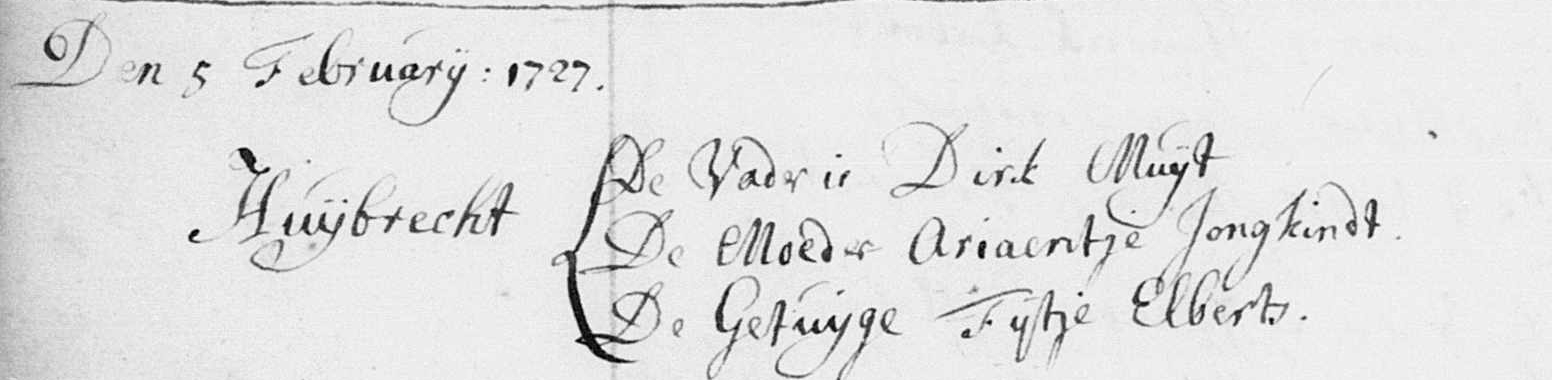 Den 5 February: 1727.
Huybrecht
De Vader is Dirk Muyt
De Moeder Ariaentje Jongkindt.
De Getuyge Fytje Elberts.